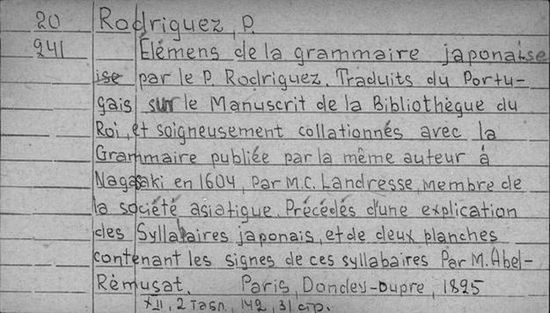 20 Rodriguez, P.
941 Élémens de la grammaire japonaise
ise par le P. Rodriguez. Traduits du Portu-
gais sur le Manuscrit de la Bibliothèque du
Roi, et soigneusement collationnés avec la
Grammaire publiée par la même auteur á
Nagasaki en 1604, par M.C. Landresse, membre de
la société asiatique. Précédés d'une explication
des Syllabaires japonais, et de deux planches
contenant les signes de ces syllabaires Par M. Abel-
Rémusat. Paris, Dondey-Dupre, 1825
XII, 2 Табл., 142, 31 стр.